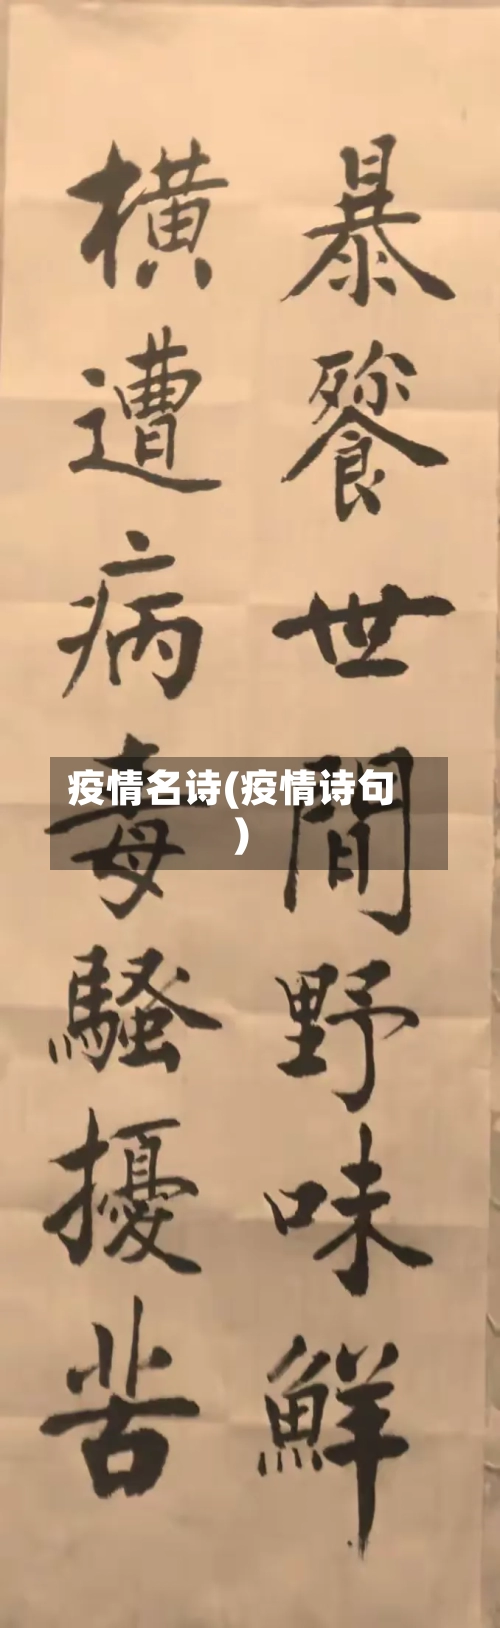 暴餮世間野味鮮
橫遭病毒騷擾苦
疫情名诗(疫情诗句
)